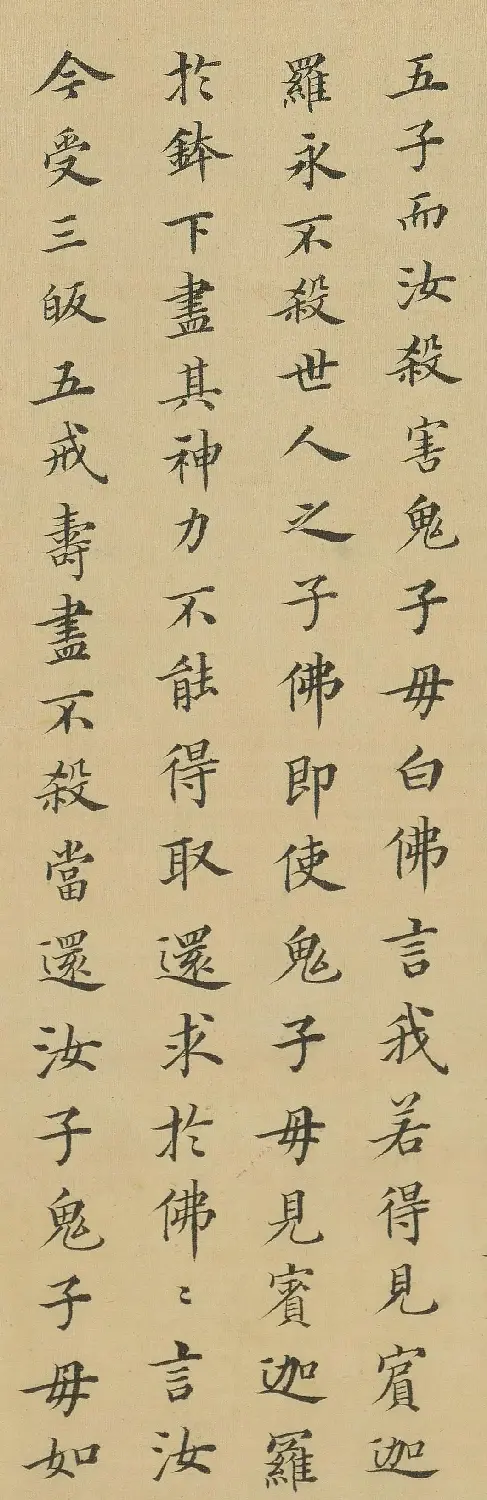 五子而汝殺害鬼子毋白佛言我若得見賔迦
羅永不殺世人之子佛即使鬼子毋見賔迦羅
於鉢下盡其神力不能得取還求於佛〻言汝
今受三皈五戒壽盡不殺當還汝子鬼子毋如